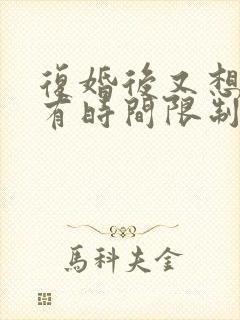 復婚後又想
有時間限制
馬科夫金